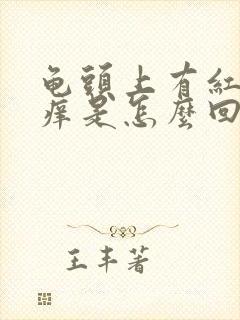 龟頭上有紅
痒是怎麼回
王丰著